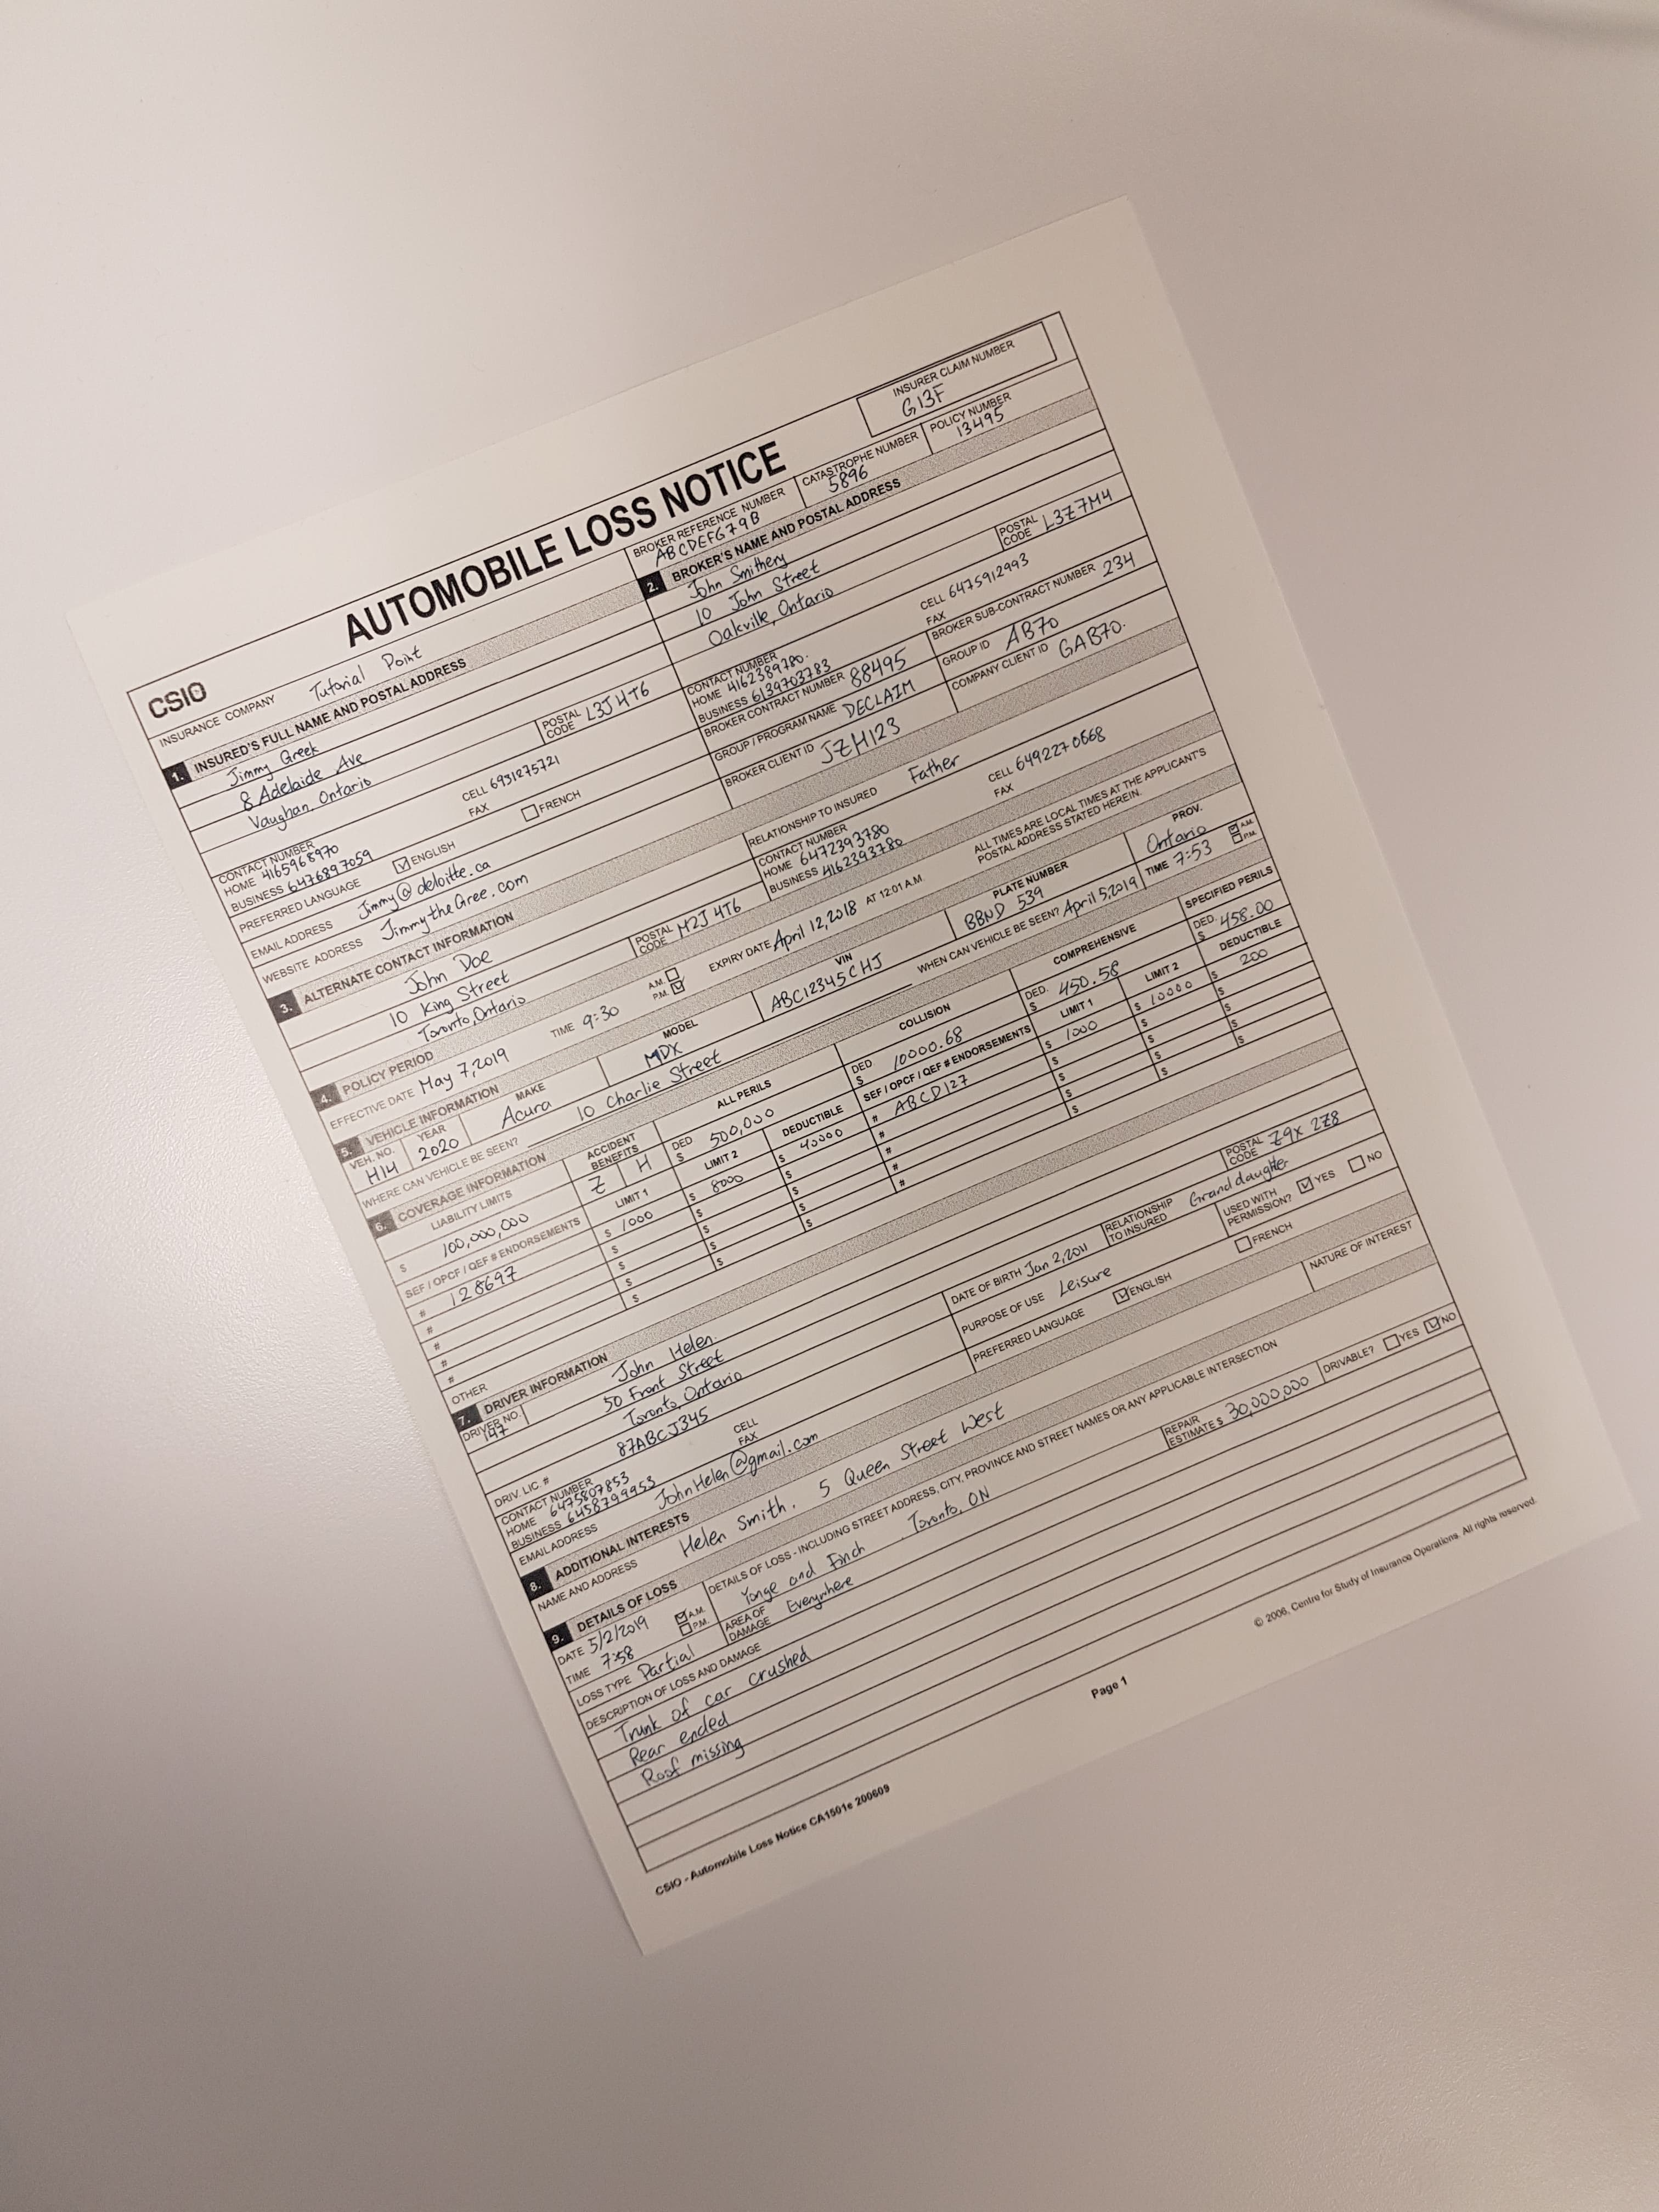 CSIO
AUTOMOBILE LOSS NOTICE
INSURER CLAIM NUMBER
G13F
INSURANCE COMPANY Tutorial Point
BROKER REFERENCE NUMBER
ABCDEFG79B
CATASTROPHE NUMBER
5896
POLICY NUMBER
13495
1. INSURED'S FULL NAME AND POSTAL ADDRESS
Jimmy Greek
8 Adelaide Ave
Vaughan, Ontario
POSTAL CODE L3J 4T6
CONTACT NUMBER
HOME 4165968970
CELL 6931275721
BUSINESS 6476897059
FAX
PREFERRED LANGUAGE ENGLISH FRENCH
EMAIL ADDRESS Jimmy@deloitte.ca
WEBSITE ADDRESS JimmytheGree.com
2. BROKER'S NAME AND POSTAL ADDRESS
John Smithery
10 John Street
Oakville, Ontario
POSTAL CODE L3Z7M4
CONTACT NUMBER
HOME 4162389780.
CELL 6475912993
BUSINESS 6139703783
FAX
BROKER CONTRACT NUMBER 88495
BROKER SUB-CONTRACT NUMBER 234
GROUP / PROGRAM NAME DECLAIM
GROUP ID AB70
BROKER CLIENT ID JZH123
COMPANY CLIENT ID GAB70.
3. ALTERNATE CONTACT INFORMATION
John Doe
10 King Street
Toronto, Ontario
POSTAL CODE M2J 4T6
RELATIONSHIP TO INSURED Father
CONTACT NUMBER
HOME 6472393780
CELL 6492270668
BUSINESS 4162393780
FAX
4. POLICY PERIOD
EFFECTIVE DATE May 7, 2019 TIME 9:30 A.M. P.M. EXPIRY DATE April 12, 2018 AT 12:01 A.M.
ALL TIMES ARE LOCAL TIMES AT THE APPLICANT'S
POSTAL ADDRESS STATED HEREIN.
5. VEHICLE INFORMATION
VEH. NO. YEAR MAKE MODEL VIN PLATE NUMBER PROV.
H14 2020 Acura MDX ABC12345CHJ BBND 539 Ontario
WHERE CAN VEHICLE BE SEEN? 10 Charlie Street WHEN CAN VEHICLE BE SEEN? April 5, 2019 TIME 7:53 A.M. P.M.
6. COVERAGE INFORMATION
LIABILITY LIMITS ACCIDENT BENEFITS ALL PERILS COLLISION COMPREHENSIVE SPECIFIED PERILS
$ 100,000,000 Z H DED $ 500,000 DED $ 10000.68 DED. $ 450.58 DED. $ 458.00
SEF / OPCF / QEF # ENDORSEMENTS LIMIT 1 LIMIT 2 DEDUCTIBLE SEF / OPCF / QEF # ENDORSEMENTS LIMIT 1 LIMIT 2 DEDUCTIBLE
# 128697 $ 1000 $ 8000 $ 40000 # ABCD127 $ 1000 $ 10000 $ 200
# $ $ $ # $ $ $
# $ $ $ # $ $ $
# $ $ $ # $ $ $
# $ $ $ # $ $ $
OTHER
7. DRIVER INFORMATION
DRIVER NO.
147
John Helen
50 Front Street
Toronto, Ontario
POSTAL CODE Z9X 2Z8
DRIV. LIC # 87ABCJ345
DATE OF BIRTH Jan 2, 2011
RELATIONSHIP TO INSURED Granddaughter
CONTACT NUMBER
HOME 6475807853
CELL
BUSINESS 6458799953
FAX
PURPOSE OF USE Leisure
USED WITH PERMISSION? YES NO
EMAIL ADDRESS JohnHelen@gmail.com
PREFERRED LANGUAGE ENGLISH FRENCH
8. ADDITIONAL INTERESTS
NAME AND ADDRESS Helen Smith, 5 Queen Street West
NATURE OF INTEREST
9. DETAILS OF LOSS
DATE 5/2/2019
TIME 7:58 A.M. P.M.
DETAILS OF LOSS - INCLUDING STREET ADDRESS, CITY, PROVINCE AND STREET NAMES OR ANY APPLICABLE INTERSECTION
Yonge and Finch Toronto, ON
LOSS TYPE Partial
AREA OF DAMAGE Everywhere
REPAIR ESTIMATE $ 30,000,000
DRIVABLE? YES NO
DESCRIPTION OF LOSS AND DAMAGE
Trunk of car crushed
Rear ended
Roof missing
CSIO - Automobile Loss Notice CA1501e 200609
Page 1
© 2006, Centre for Study of Insurance Operations. All rights reserved.